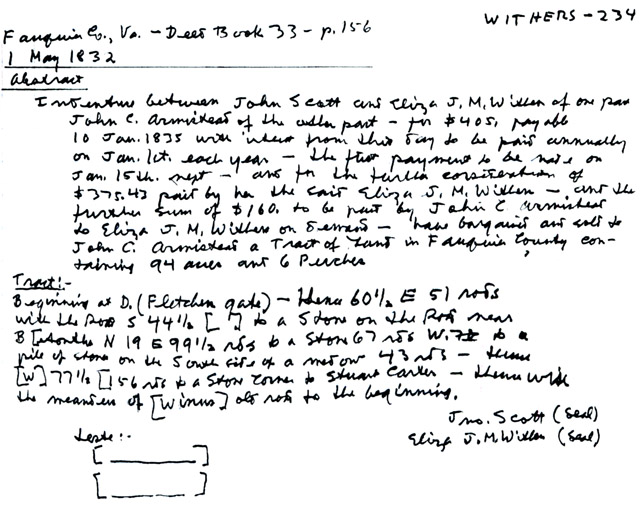 WITHERS - 234
Fauquier Co., Va. - Deed Book 33 - p. 156
1 May 1832
Abstract
Indenture between John Scott and Eliza J. M. Withers of one part
John C. Armistead of the other part - for $405, payable
10 Jan. 1835 with interest from this day to be paid annually
on Jan. 1st. each year - the first payment to be made on
Jan. 15th. next - and for the further consideration of
$375.43 paid by her the said Eliza J. M. Withers - and the
further sum of $160. to be paid by John C Armistead
to Eliza J. M. Withers on demand - have bargained and sold to
John C. Armistead a Tract of Land in Fauquier County con-
taining 94 acres and 6 Perches
Tract:-
Beginning at D. (Fletcher gate) - thence 60 1/2 E 51 rods
with the Road S 44 1/2 [ ] to a Stone on the Road near
B [ N 19 E 99 1/2 rds to a Stone 67 rds W. to a
pile of stone on the South side of a meadow 43 rds - thence
[W] 77 1/2 [156 rds to a Stone Corner to Stuart Carter - thence with
the meanders of [Winns] old road to the beginning.
Jno. Scott (Seal)
Eliza J. M. Withers (Seal)
Teste:-